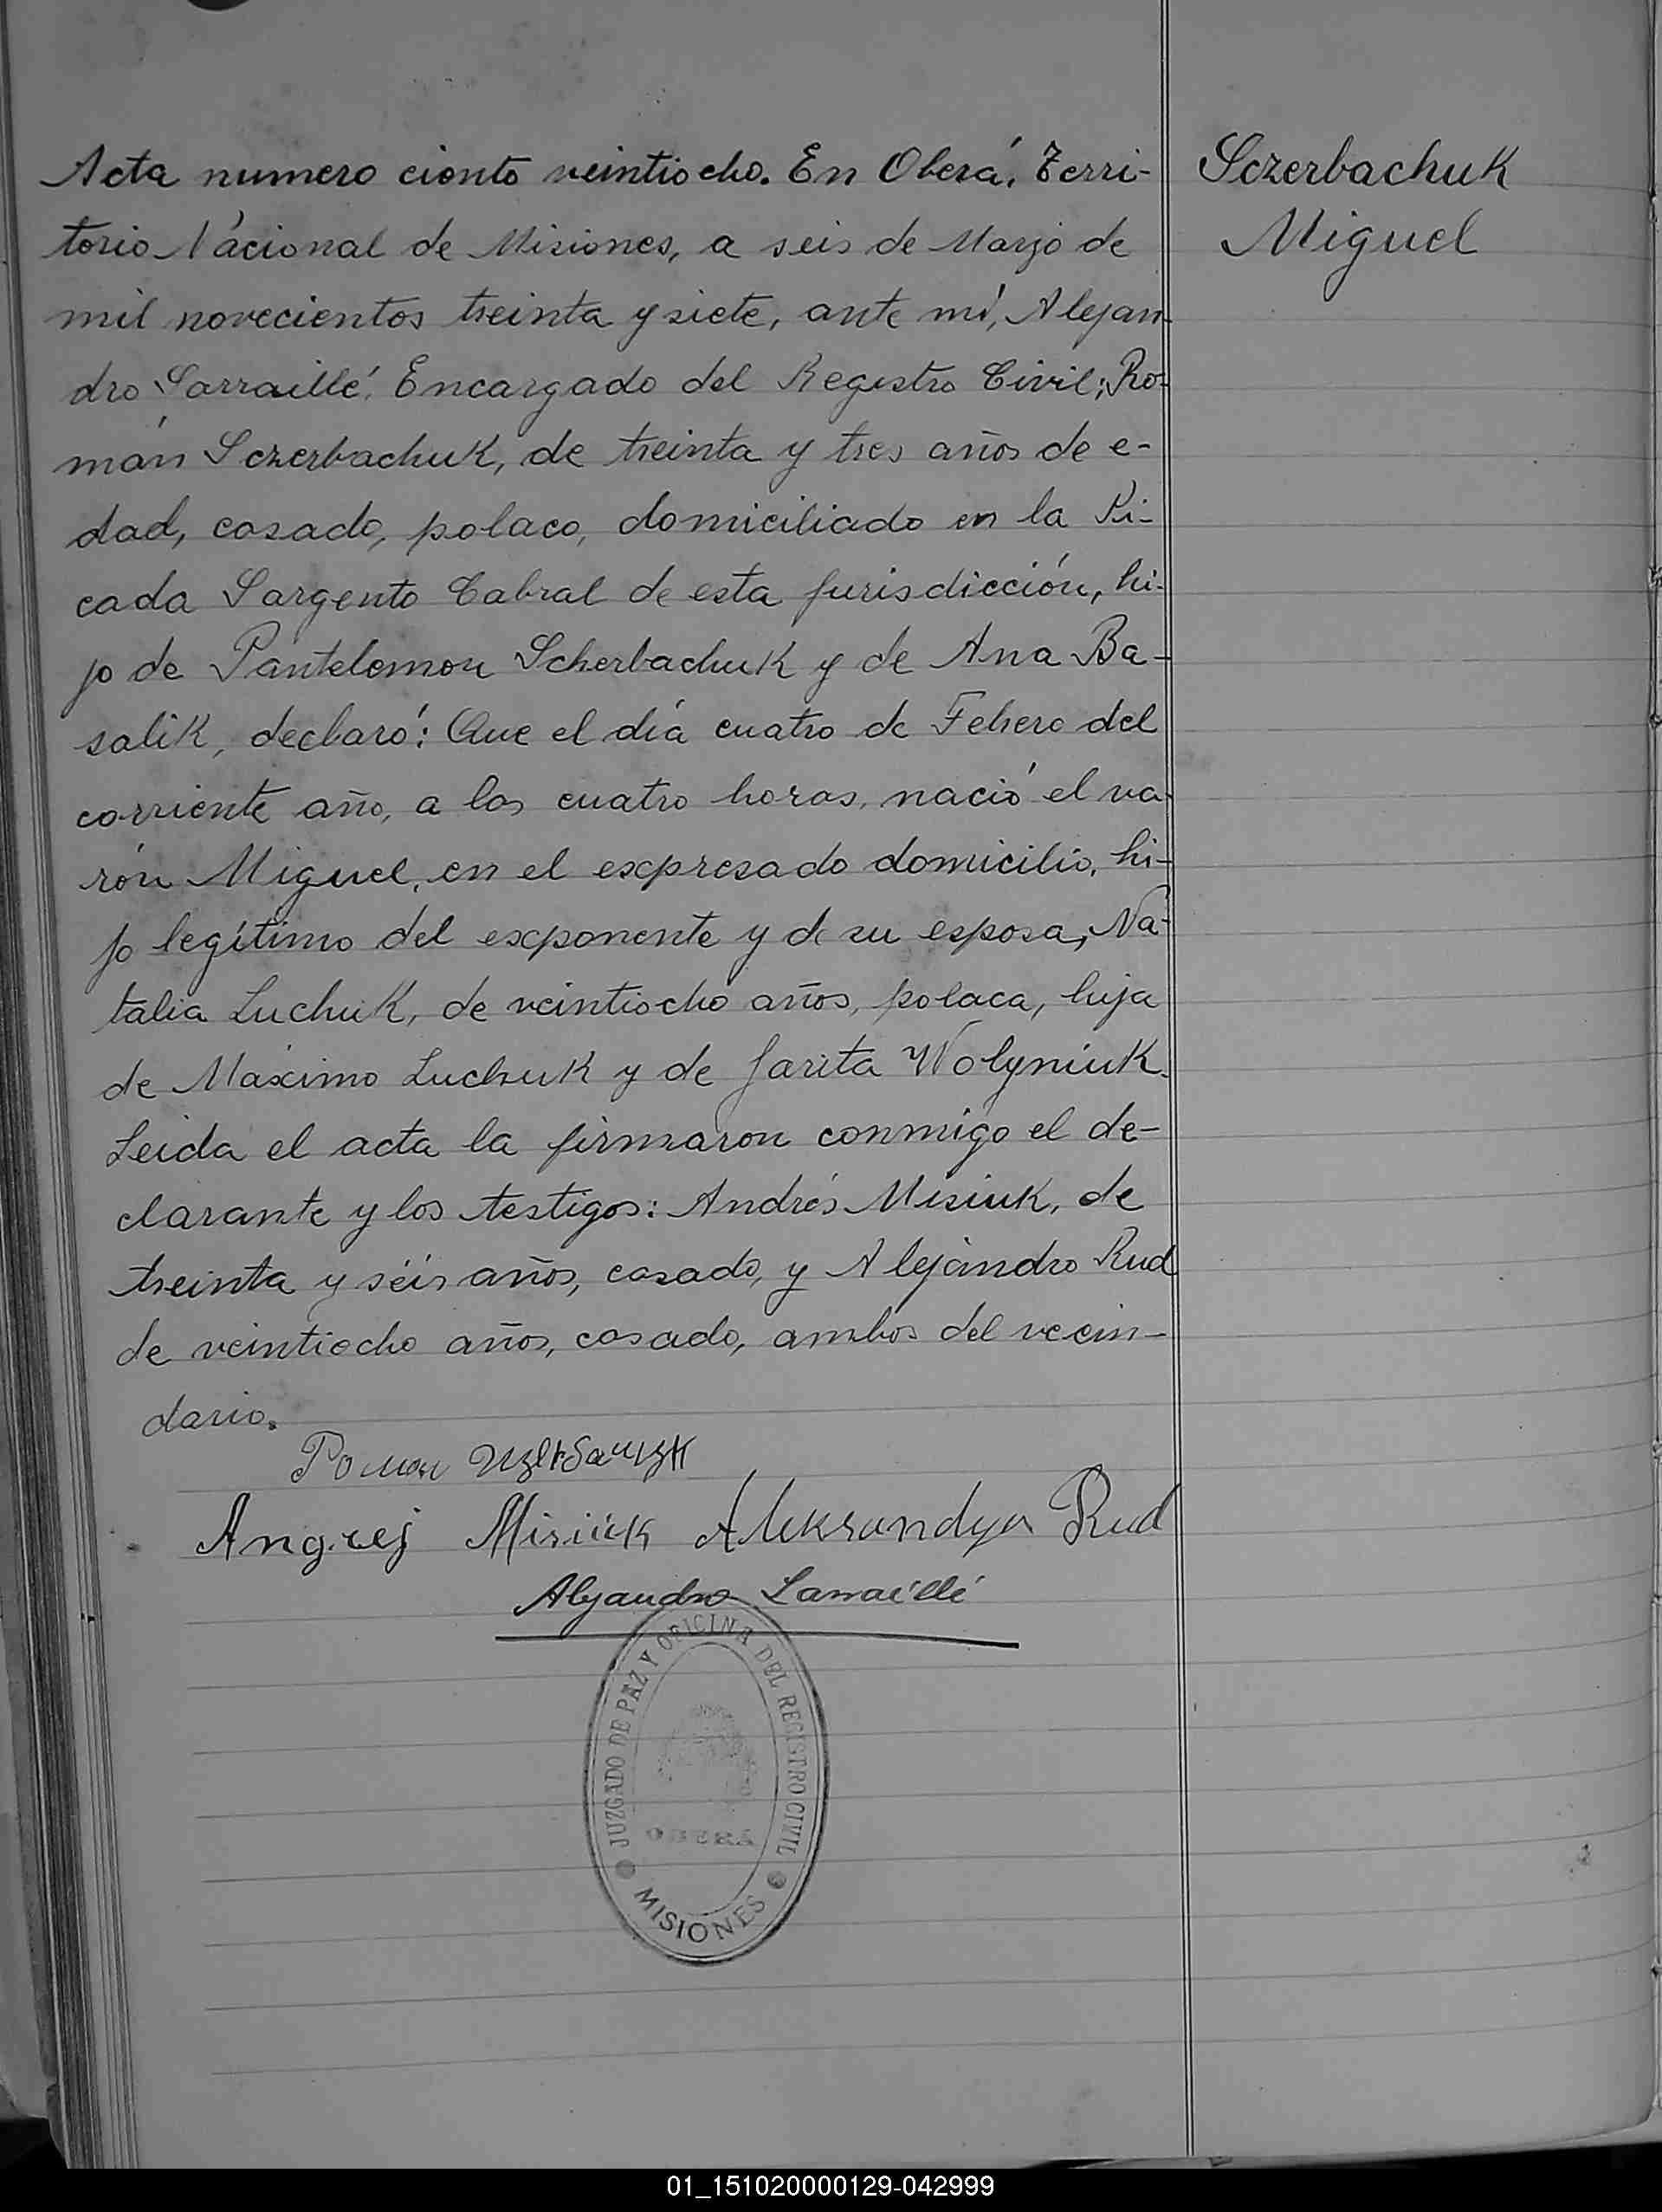 Acta numero ciento veintiocho. En Oberá, Terri-
torio Nacional de Misiones, a seis de Marzo de
mil novecientos treinta y siete, ante mí, Alejan-
dro Sarraillé, Encargado del Registro Civil; Ro-
mán Sczerbachuk, de treinta y tres años de e-
dad, casado, polaco, domiciliado en la Pi-
cada Sargento Cabral de esta jurisdicción, hi-
jo de Pantelemon Scherbachuk y de Ana Ba-
salik, declaró: Que el día cuatro de Febrero del
corriente año, a las cuatro horas, nació el va-
rón Miguel, en el expresado domicilio, hi-
jo legítimo del exponente y de su esposa, Na-
talia Luchuk, de veintiocho años, polaca, hija
de Máximo Luchuk y de Jarita Wolyniuk.
Leida el acta la firmaron conmigo el de-
clarante y los testigos: Andrés Misiuk, de
treinta y séis años, casado, y Alejandro Rud
de veintiocho años, casado, ambos del vecin-
dario.
Sczerbachuk
Miguel
Роман
Angrej Misiuk Aleksandyr Rud
Alejandro Sarraillé
JUZGADO DE PAZ Y OFICINA DEL REGISTRO CIVIL
OBERÁ
MISIONES
01_151020000129-042999